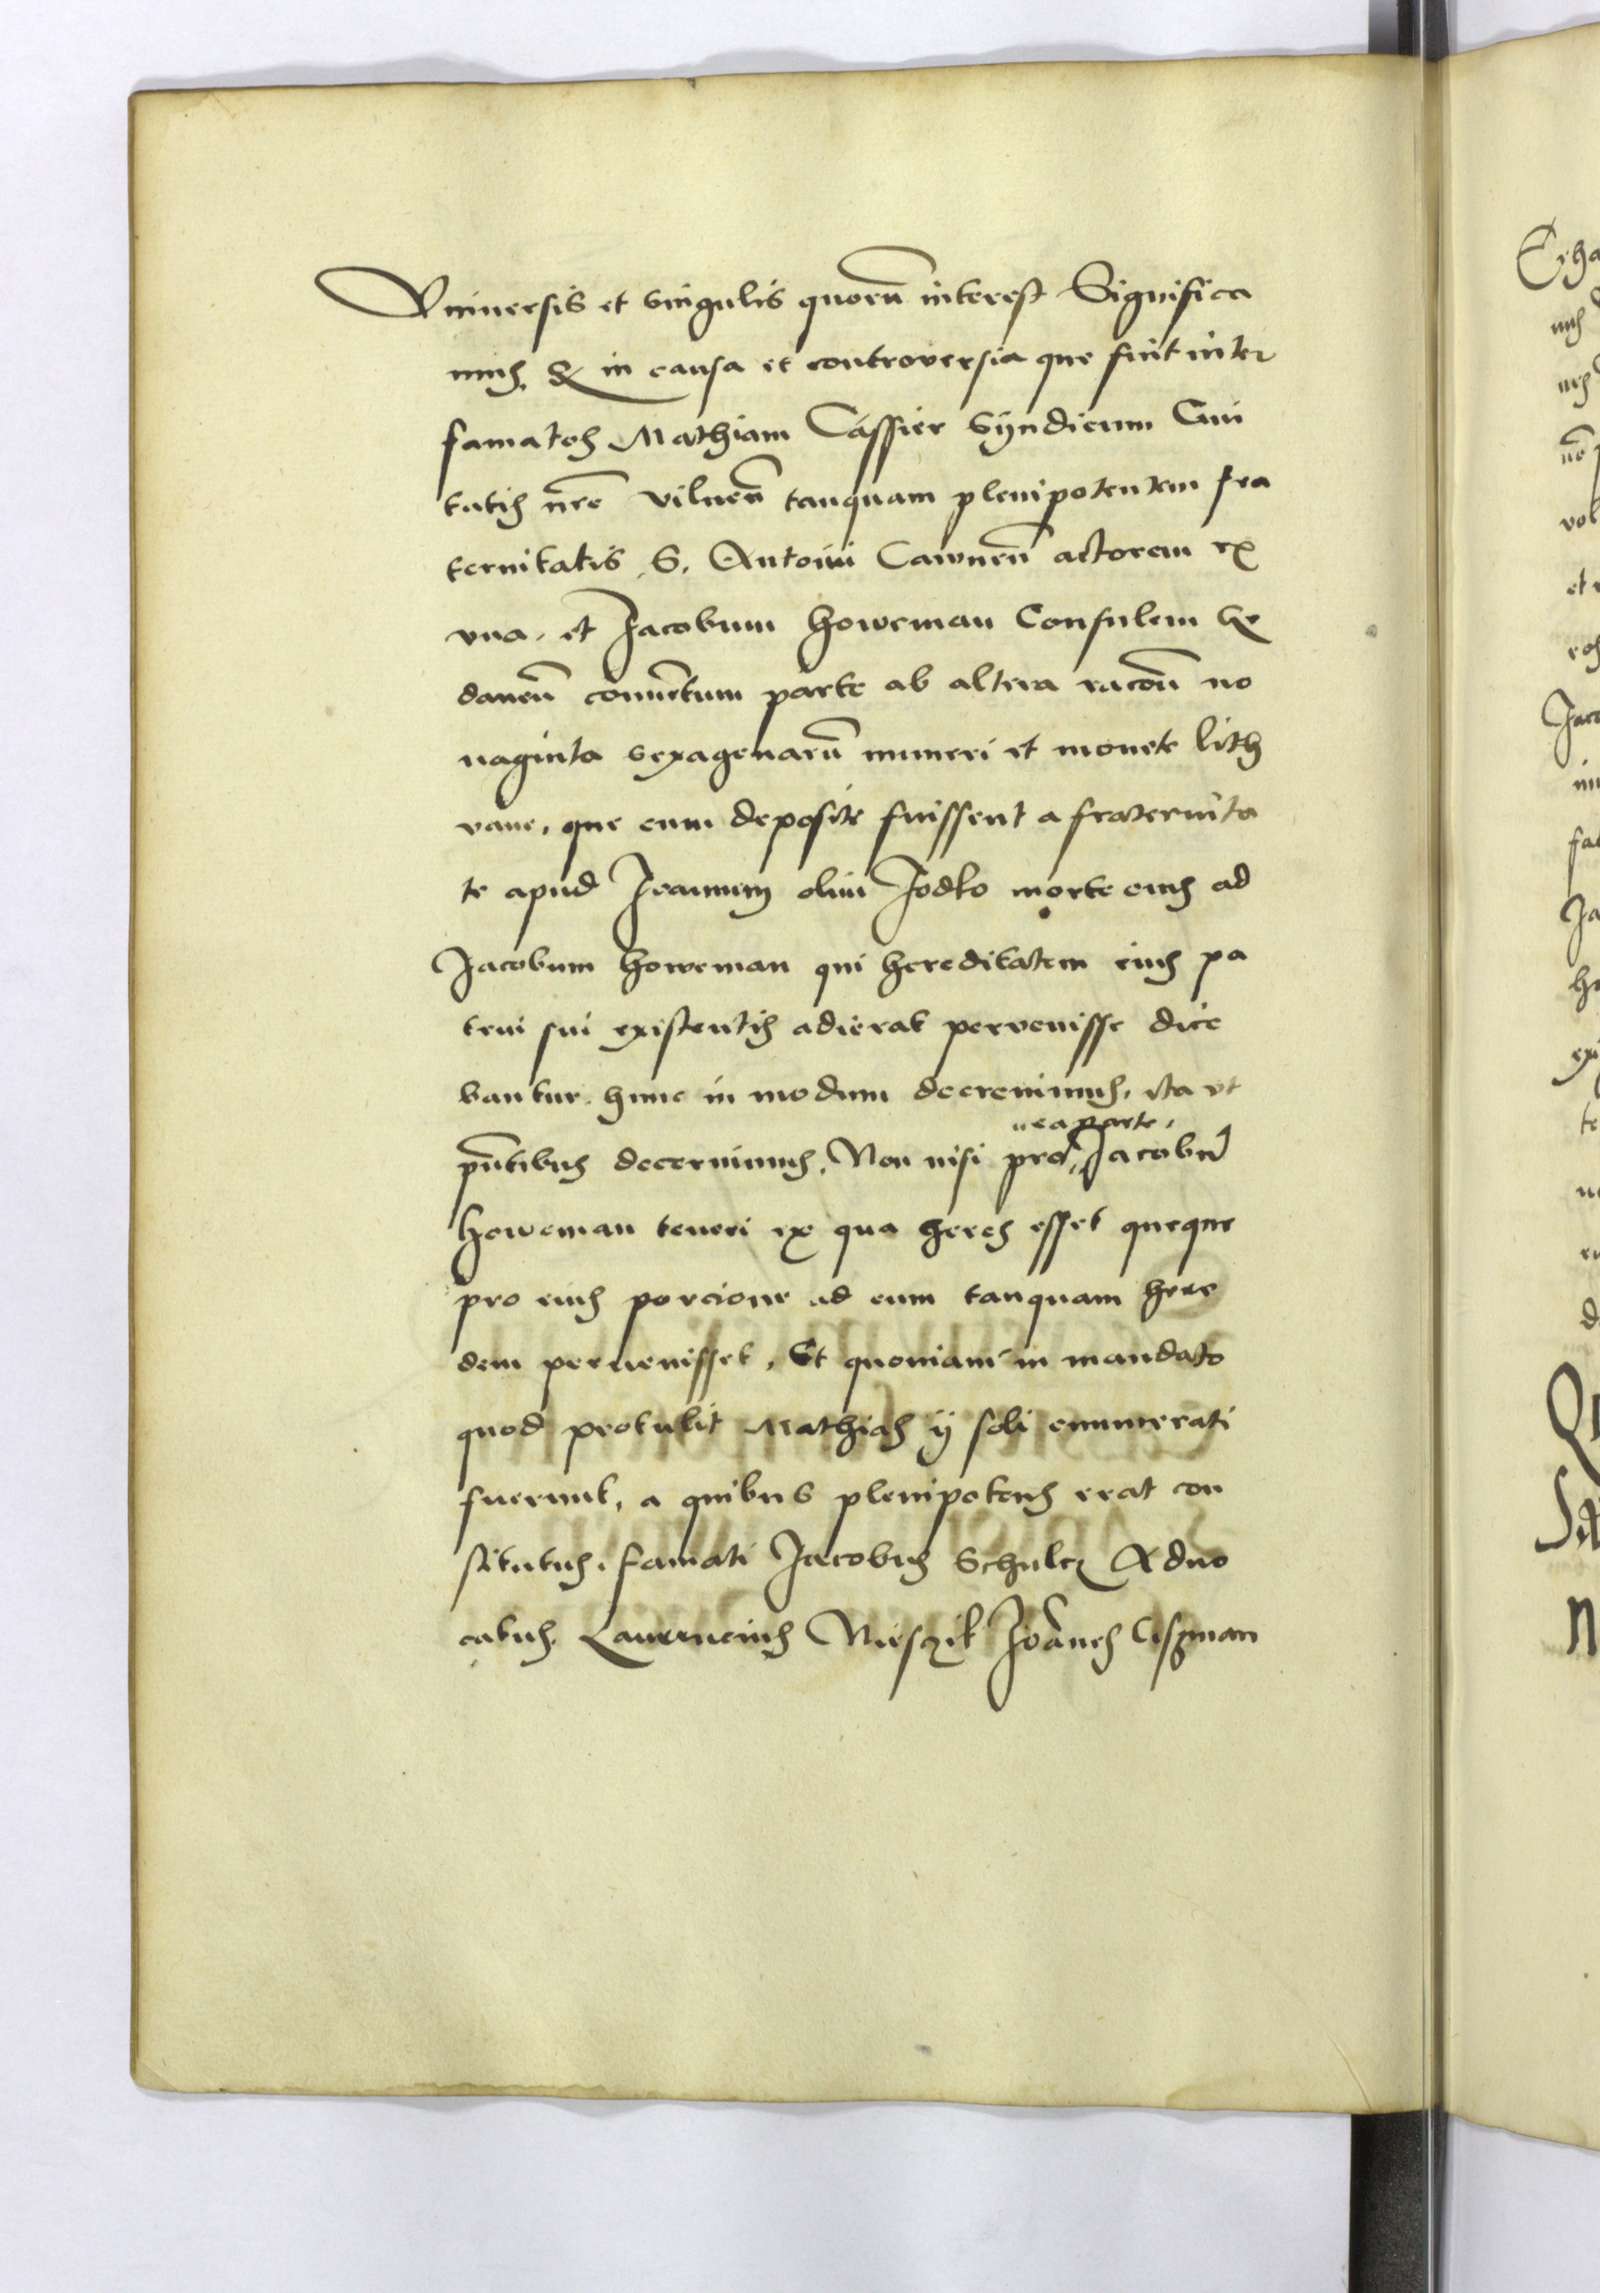 Vniuersis et singulis quorū interest Significa
mus, Q in causa et controversia que fuit inter
famatos Mathiam Cassier Syndicum Ciui
tatis nr̄e vilnen̄ tanquam plenipotentem fra
ternitatis S. Antonii Cawnen̄ actorem ex
vna, et Jacobum Howeman Consulem Ge
danen̄ conuētum parte ab altera racōn no
naginta sexagenarū numeri et monete lith
vane, que cum deposite fuissent a fraternita
te apud Joannem olim Jodko morte eius ad
Jacobum Howeman qui hereditatem eius pa
trui sui existentis adierat pervenisse dice
bantur. hunc in modum decreuimus, ita vt
pn̄tibus decernimus, Non nisi pro ea parte, Jacobū
Howeman teneri ex qua heres esset queque
pro eius porcione ad eum tanquam here
dem peruenisset, Et quoniam in mandato
quod protulit Mathias ij soli enumerati
fuerunt, a quibus plenipotens erat con
stitutus, famati Jacobus Schulcz Aduo
catus, Laurencius Mieszik Joānes Liszman
Jaco